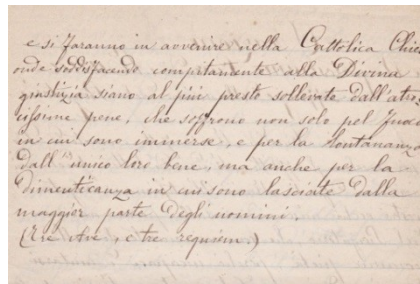 e si faranno in avvenire nella Cattolica Chies
onde soddisfacendo compitamente alla Divina
giustizia siano al più presto sollevate dall'atro
cissime pene, che soffrono non solo pel fuoco
in cui sono immerse, e per la lontananza
dall'unico loro bene, ma anche per la
dimenticanza in cui sono lasciate dalla
maggior parte degli uomini.
(Tre Ave, e tre requiem.)